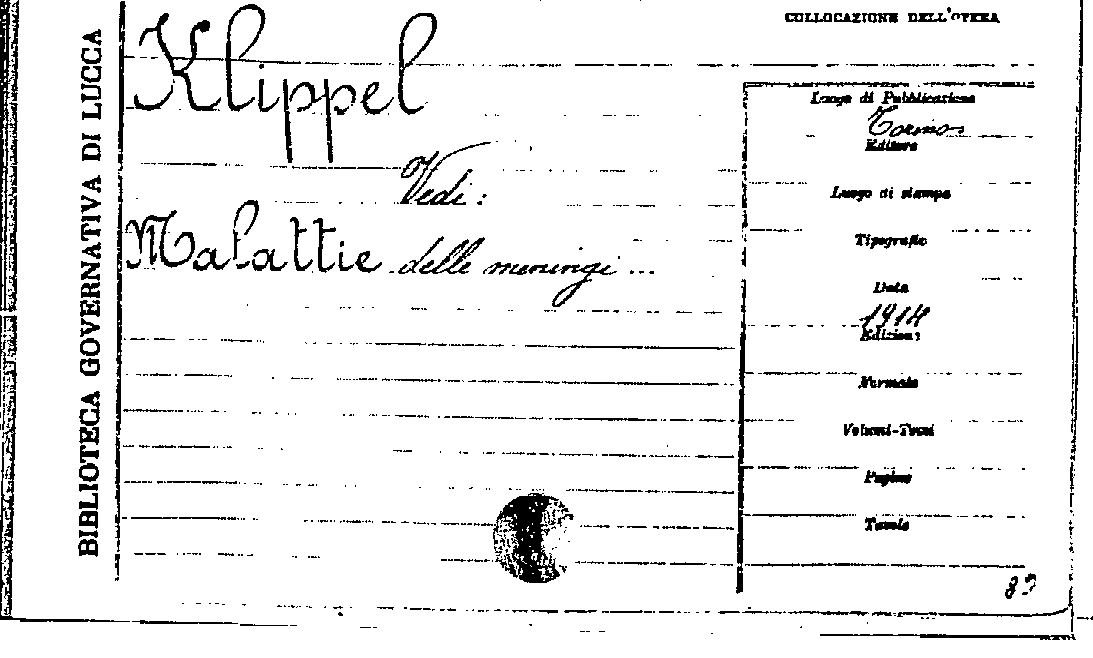 BIBLIOTECA GOVERNATIVA DI LUCCA
COLLOCAZIONE DELL'OPERA
Klippel
Vedi:
Malattie delle meningi ...
Luogo di Pubblicazione
Torino
Editore
Luogo di stampa
Tipografo
Data
1914
Edizione
Formato
Volumi-Tomi
Pagine
Tavole